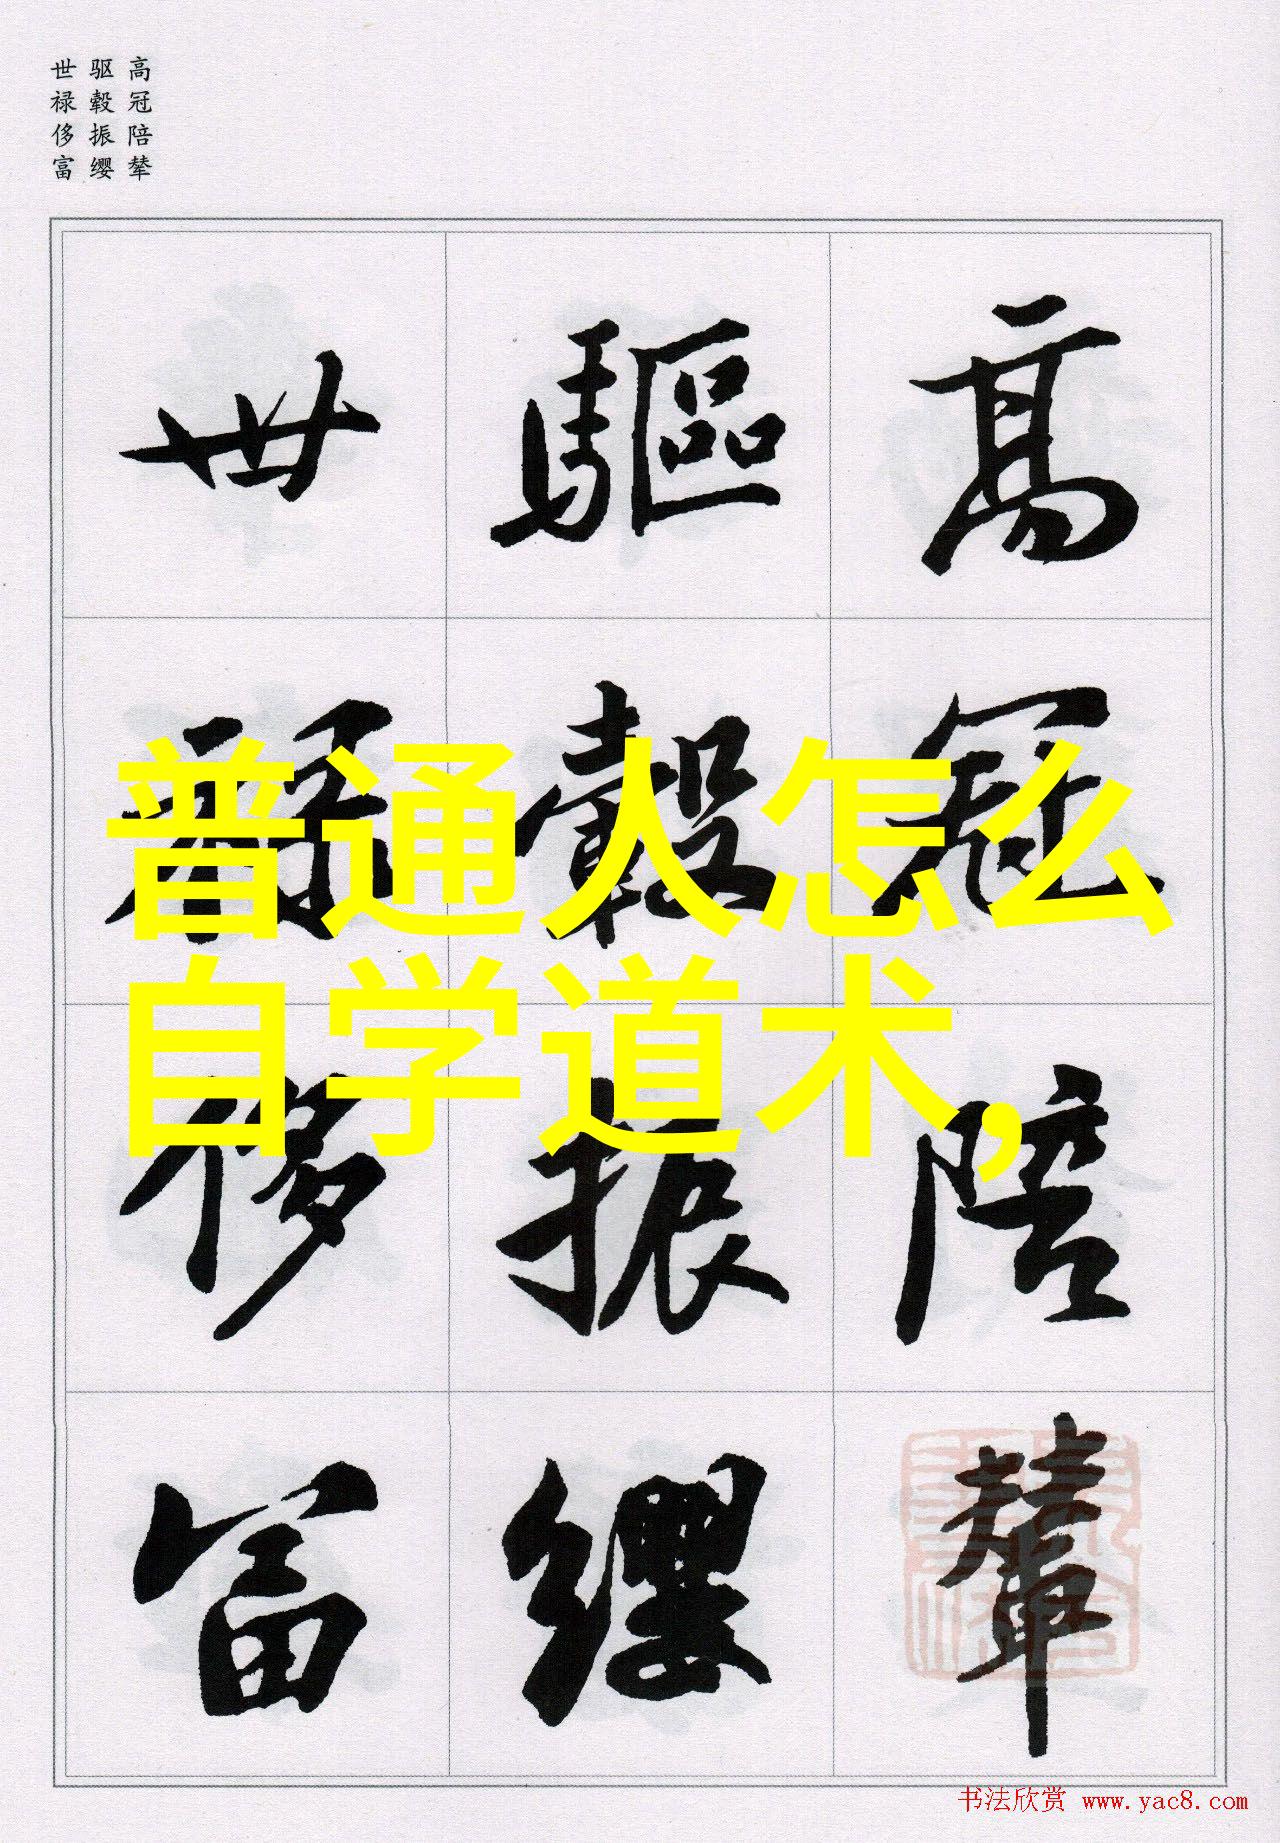 高冠陪辇
驱毂振缨
世禄侈富
高冠陪輦
驅轂振纓
世禄侈富
普通人怎么
自学道术，
书法欣赏 www.yac8.com